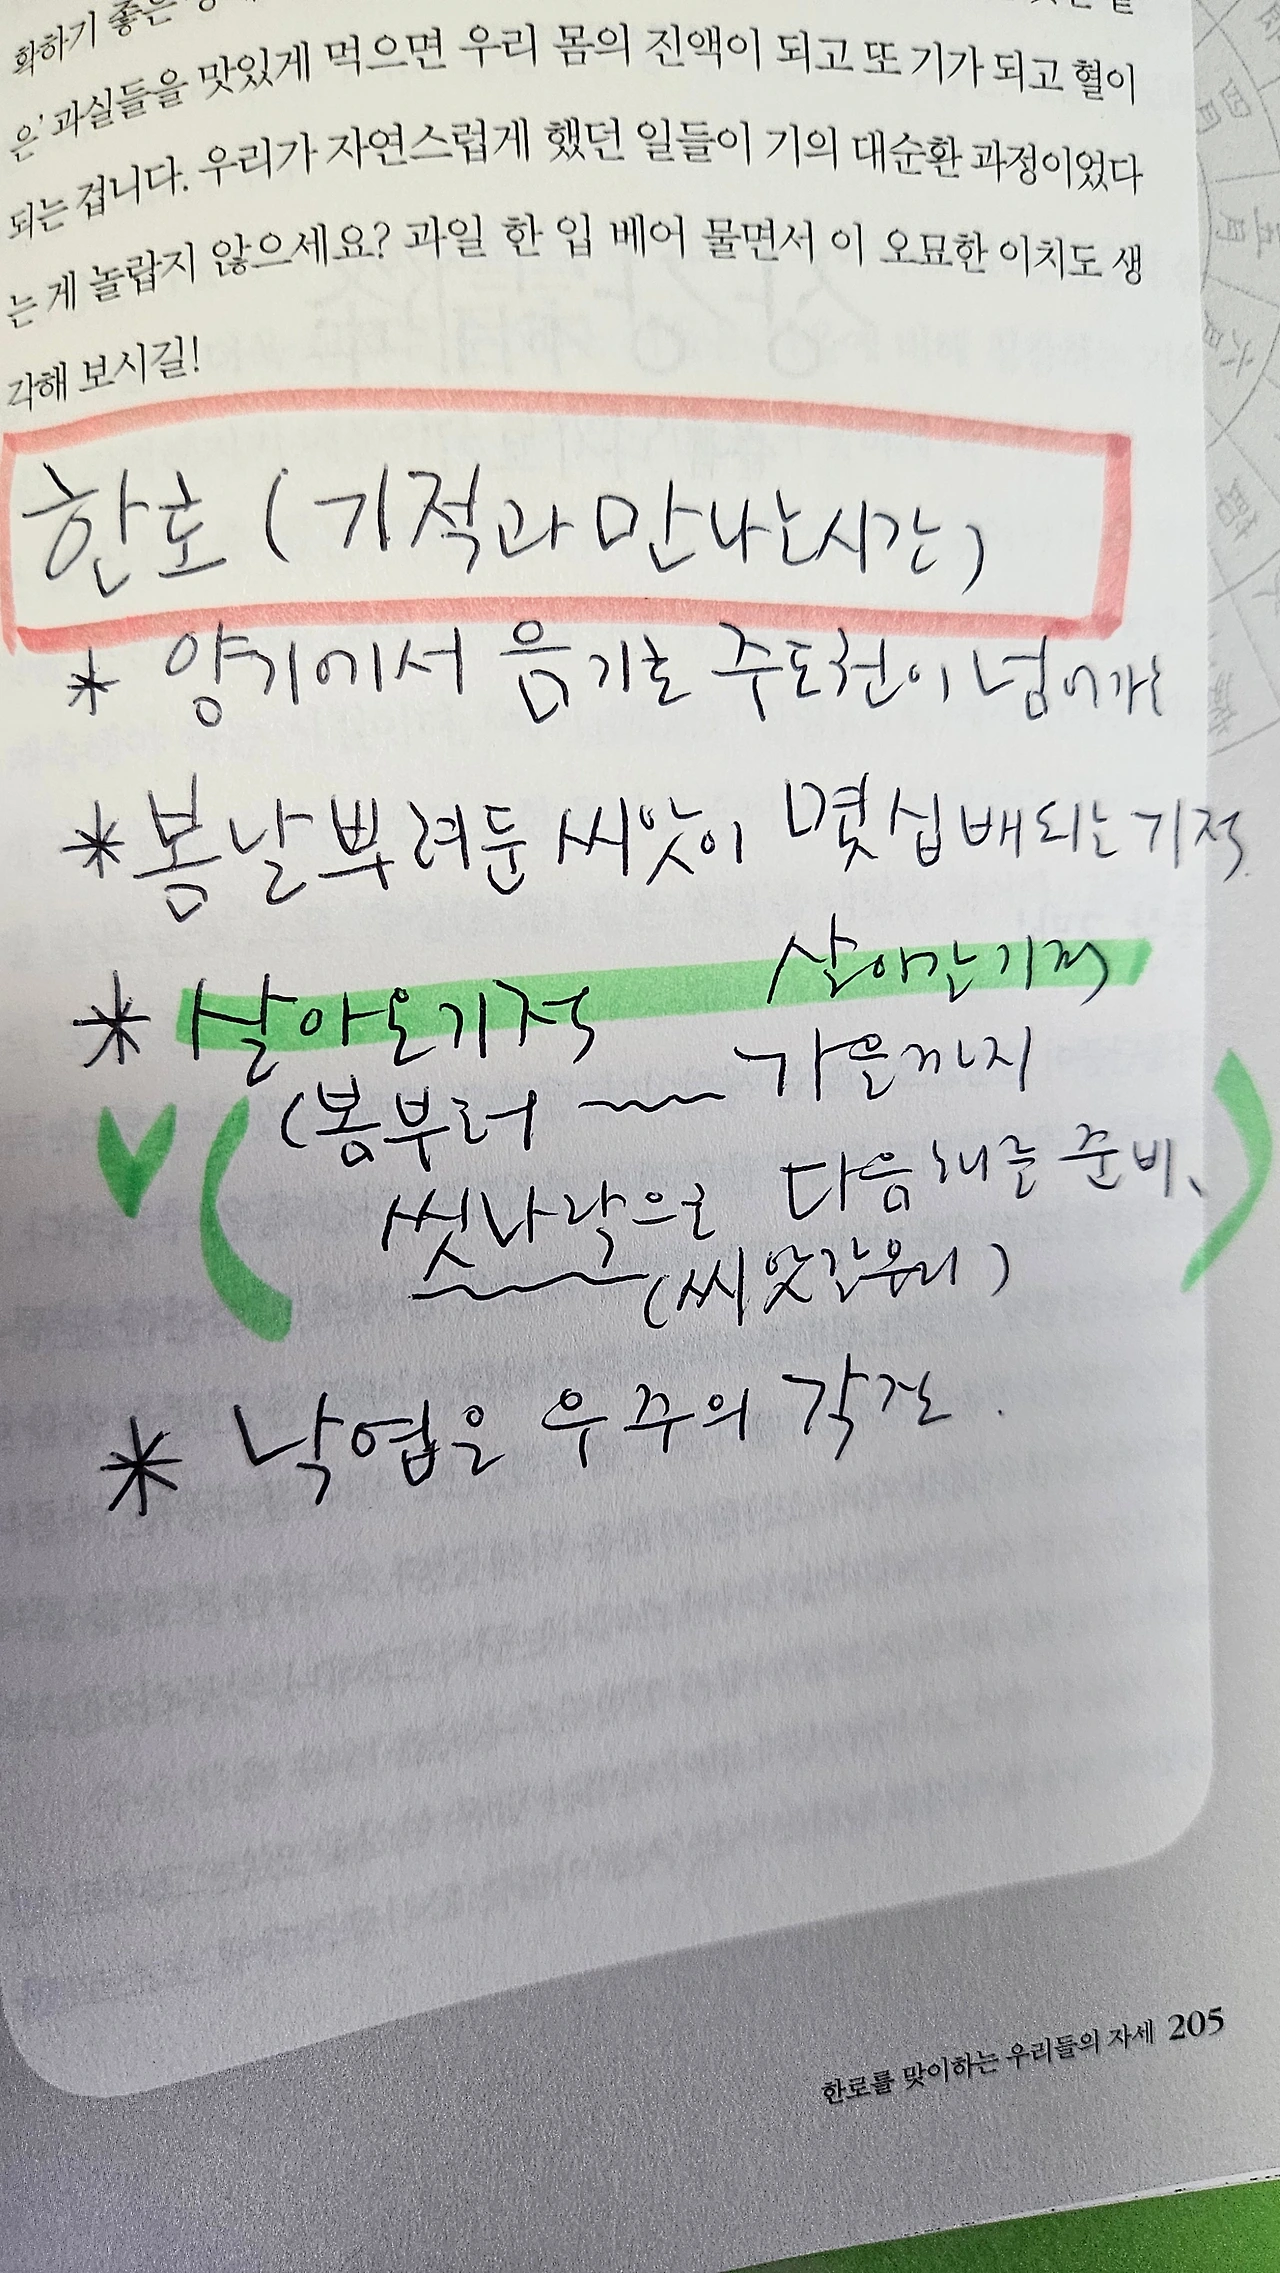 화하기 좋은
은' 과실들을 맛있게 먹으면 우리 몸의 진액이 되고 또 기가 되고 혈이
되는 겁니다. 우리가 자연스럽게 했던 일들이 기의 대순환 과정이었다
는 게 놀랍지 않으세요? 과일 한 입 베어 물면서 이 오묘한 이치도 생
각해 보시길!
한로 (기적과 만나는시간)
* 양기에서 음기로 주도권이 넘어가는
* 봄날 뿌려둔 씨앗이 몇 십 배되는 기적.
* 살아온기적 살아갈기적
(봄부터 ~~ 가을까지
씻나락으로 다음해를 준비、
(씨앗갈무리)
* 낙엽은 우주의 각건.
한로를 맞이하는 우리들의 자세 205